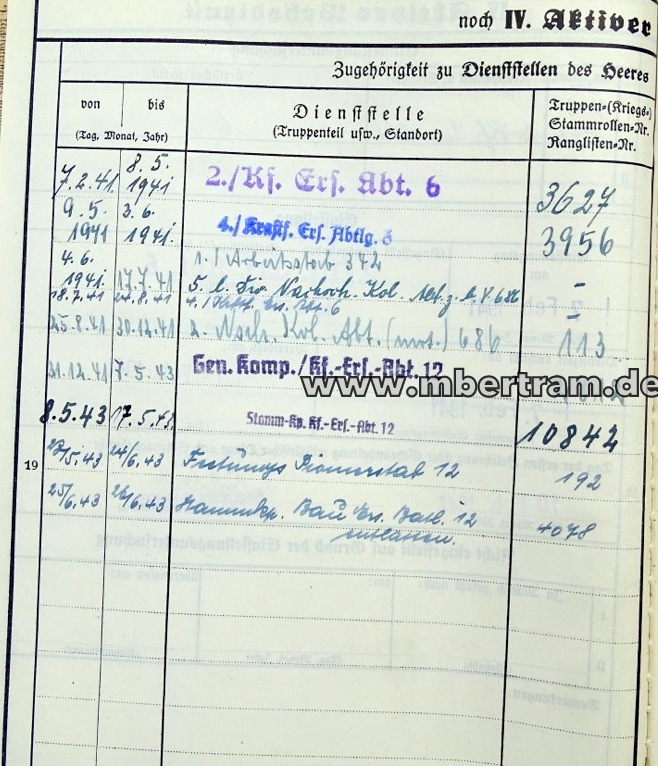 noch IV. Aktiver
Zugehörigkeit zu Dienststellen des Heeres
von bis
(Tag, Monat, Jahr)
Dienststelle
(Truppenteil usw., Standort)
Truppen-(Kriegs-)
Stammrollen-Nr.
Ranglisten-Nr.
7.2.41 8.5. 1941 2./Kf. Ers. Abt. 6 3627
9.5. 1941 3.6. 1941. 4./Kraftf. Ers. Abtlg. 6 3956
4.6. 1941. 17.7.41 1./Arbeitsstab 342
5. l. Kol. –
18.7.41 24.8.41 4./Kraftf. Ers. Abt. 6 –
25.8.41 30.12.41 2. Nach. Kol. Abt. (mot.) 686 113
31.12.41 7.5.43 Gen. Komp./Kf.-Ers.-Abt. 12
www.mbertram.de
8.5.43 17.5.43. Stamm-Kp. Kf.-Ers.-Abt. 12 10842
19
/5.43 24/6.43 Festungs Pionierstab 12 192
25/6.43 26/6.43 Stammkp. Bau Ers. Batl. 12 4078
entlassen.